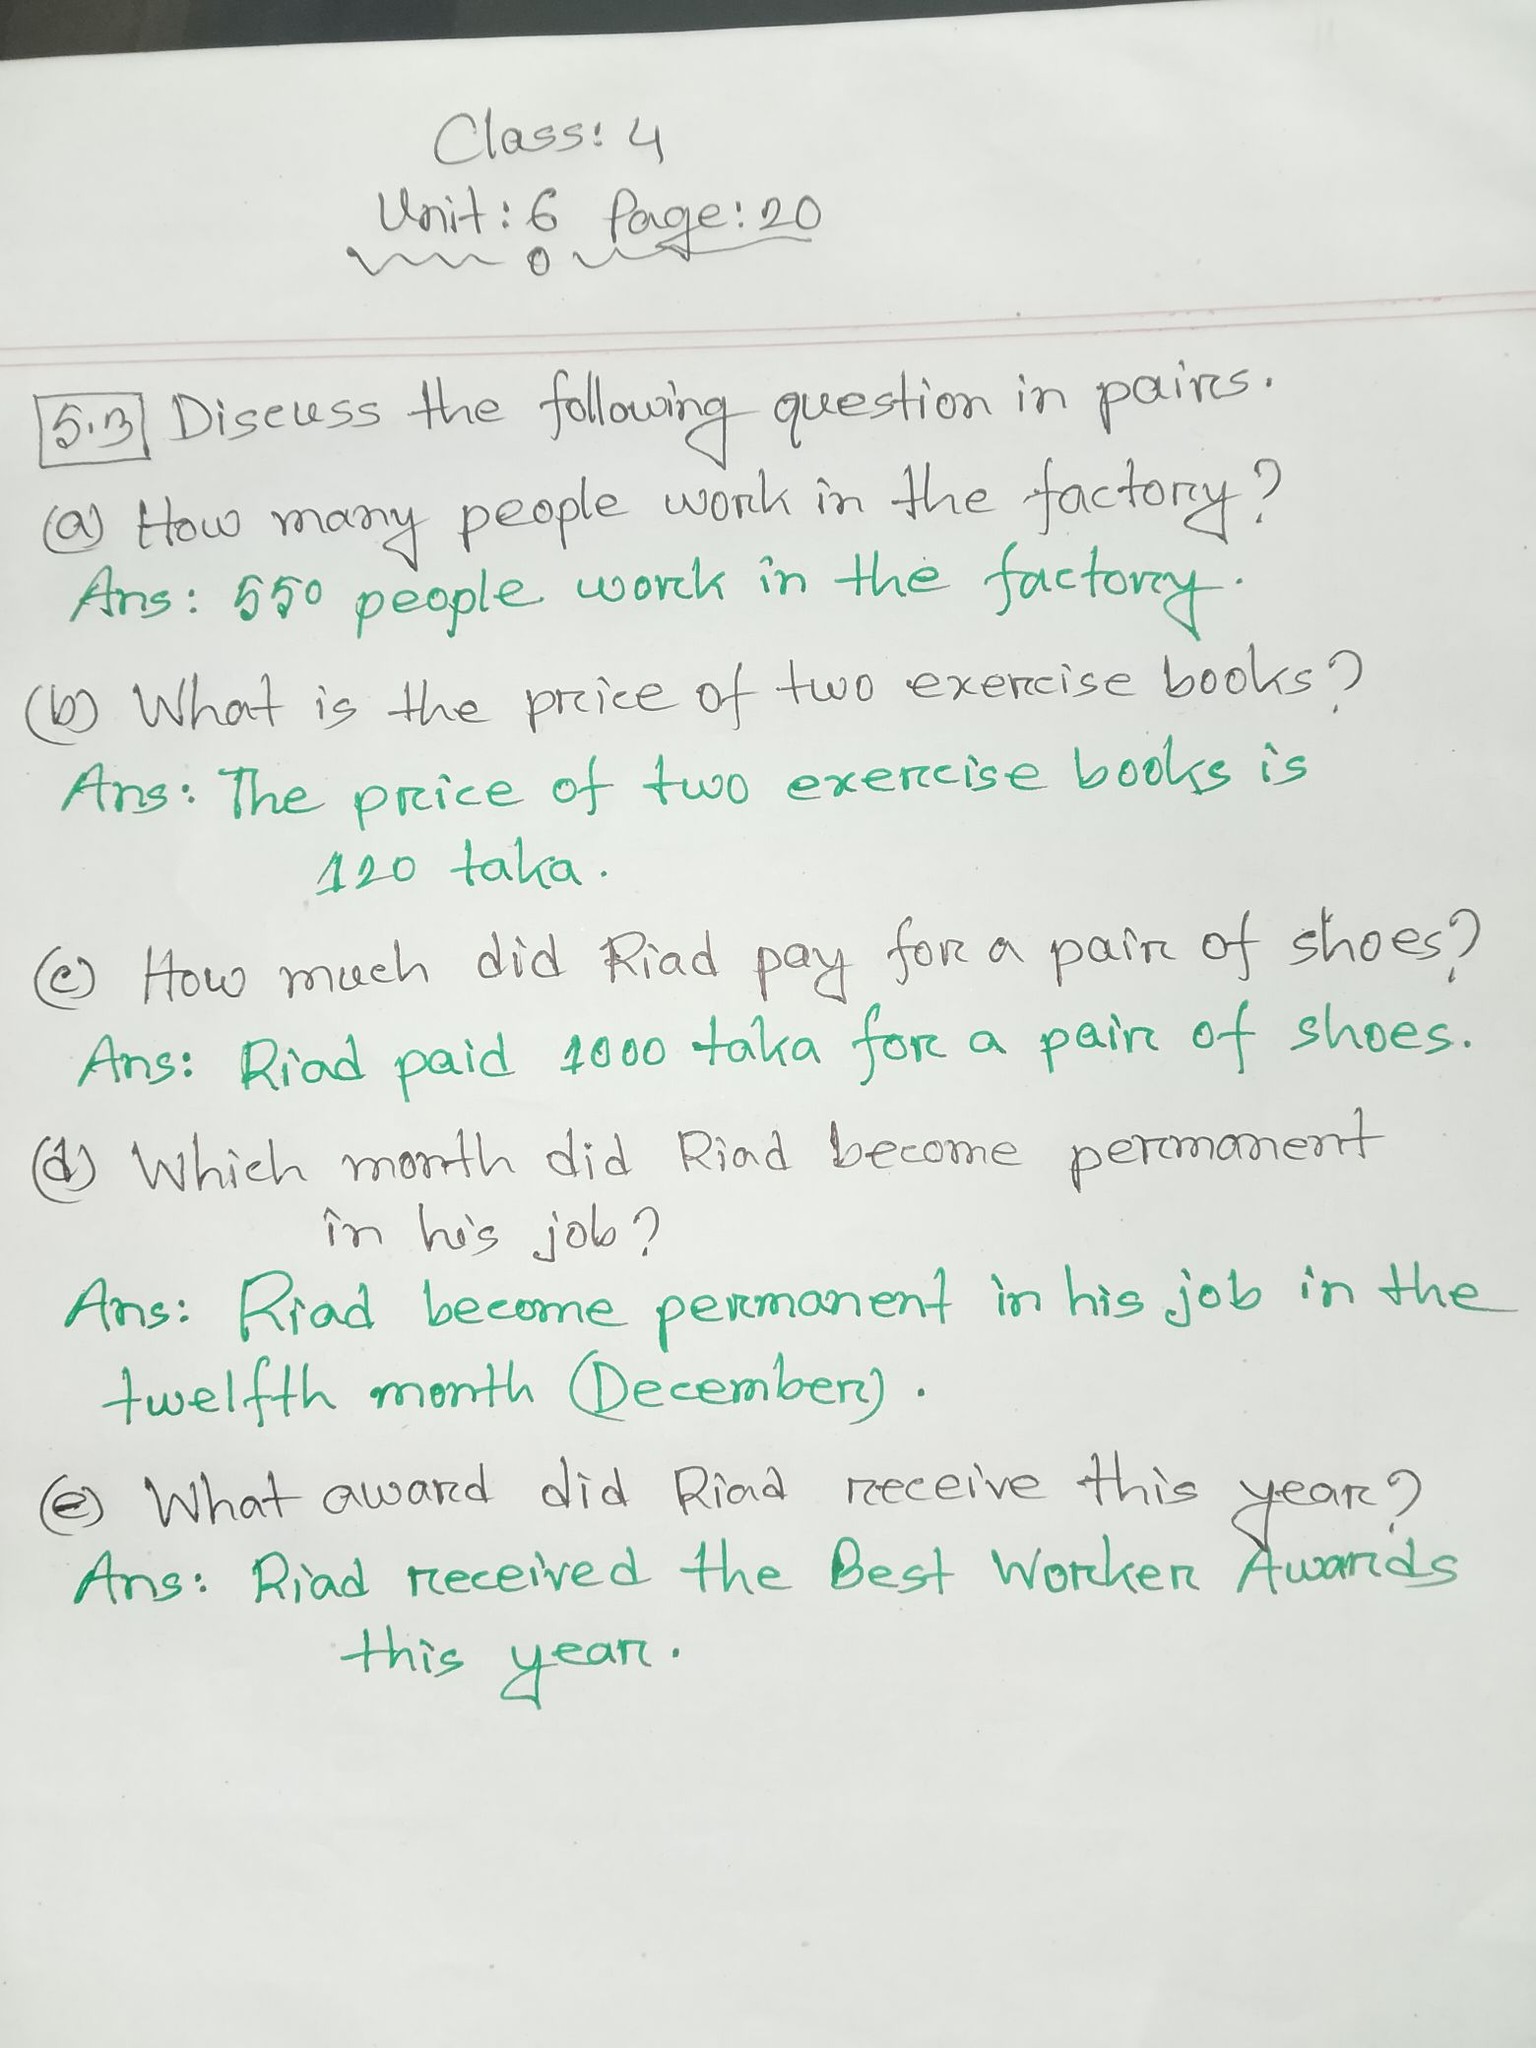 Class: 4
Unit: 6 Page: 20
5.3 Discuss the following question in pairs.
(a) How many people work in the factory?
Ans: 550 people work in the factory.
(b) What is the price of two exercise books?
Ans: The price of two exercise books is
120 taka.
(c) How much did Riad pay for a pair of shoes?
Ans: Riad paid 1000 taka for a pair of shoes.
(d) Which month did Riad become permanent
in his job?
Ans: Riad become permanent in his job in the
twelfth month (December).
(e) What award did Riad receive this year?
Ans: Riad received the Best Worker Awards
this year.